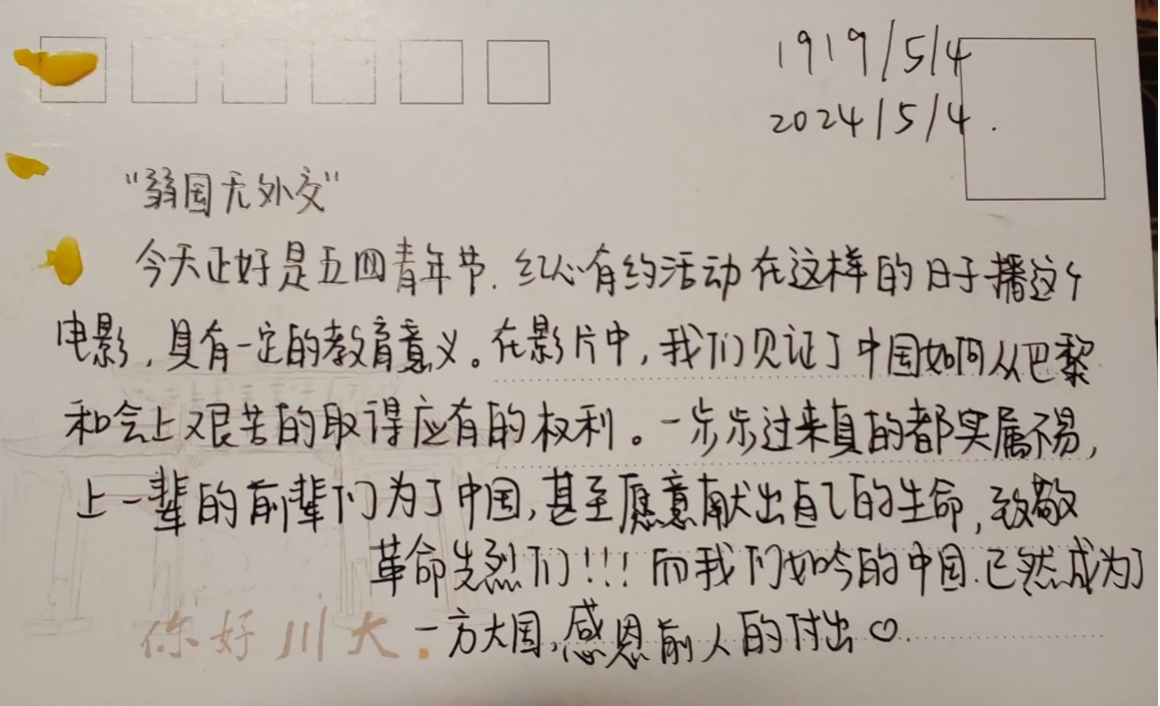 1919/5/4
2024/5/4.
“弱国无外交”
今天正好是五四青年节.红心有约活动在这样的日子播这个
电影,具有一定的教育意义。在影片中,我们见证了中国如何从巴黎
和会上艰苦的取得应有的权利。一步步过来真的都实属不易,
上一辈的前辈们为了中国,甚至愿意献出自己的生命,致敬
革命先烈们!!!而我们如今的中国.已然成为了
一方大国,感恩前人的付出♡.
你好川大